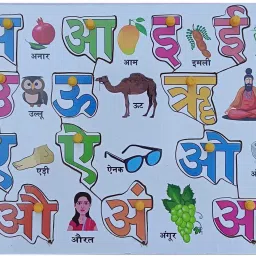 अ अनार आ आम इ इमली ई
उ उल्लू ऊ ऊट ऋ
ए एड़ी ऐ ऐनक ओ
औ औरत अं अंगूर अः